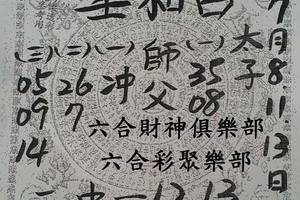 聖和宮
7月8.11.13日
太子
(一)
35
08
師父
(一)
冲
(二)
26
7
(三)
05
09
14
六合財神俱樂部
六合彩聚樂部
二 中一 12 13